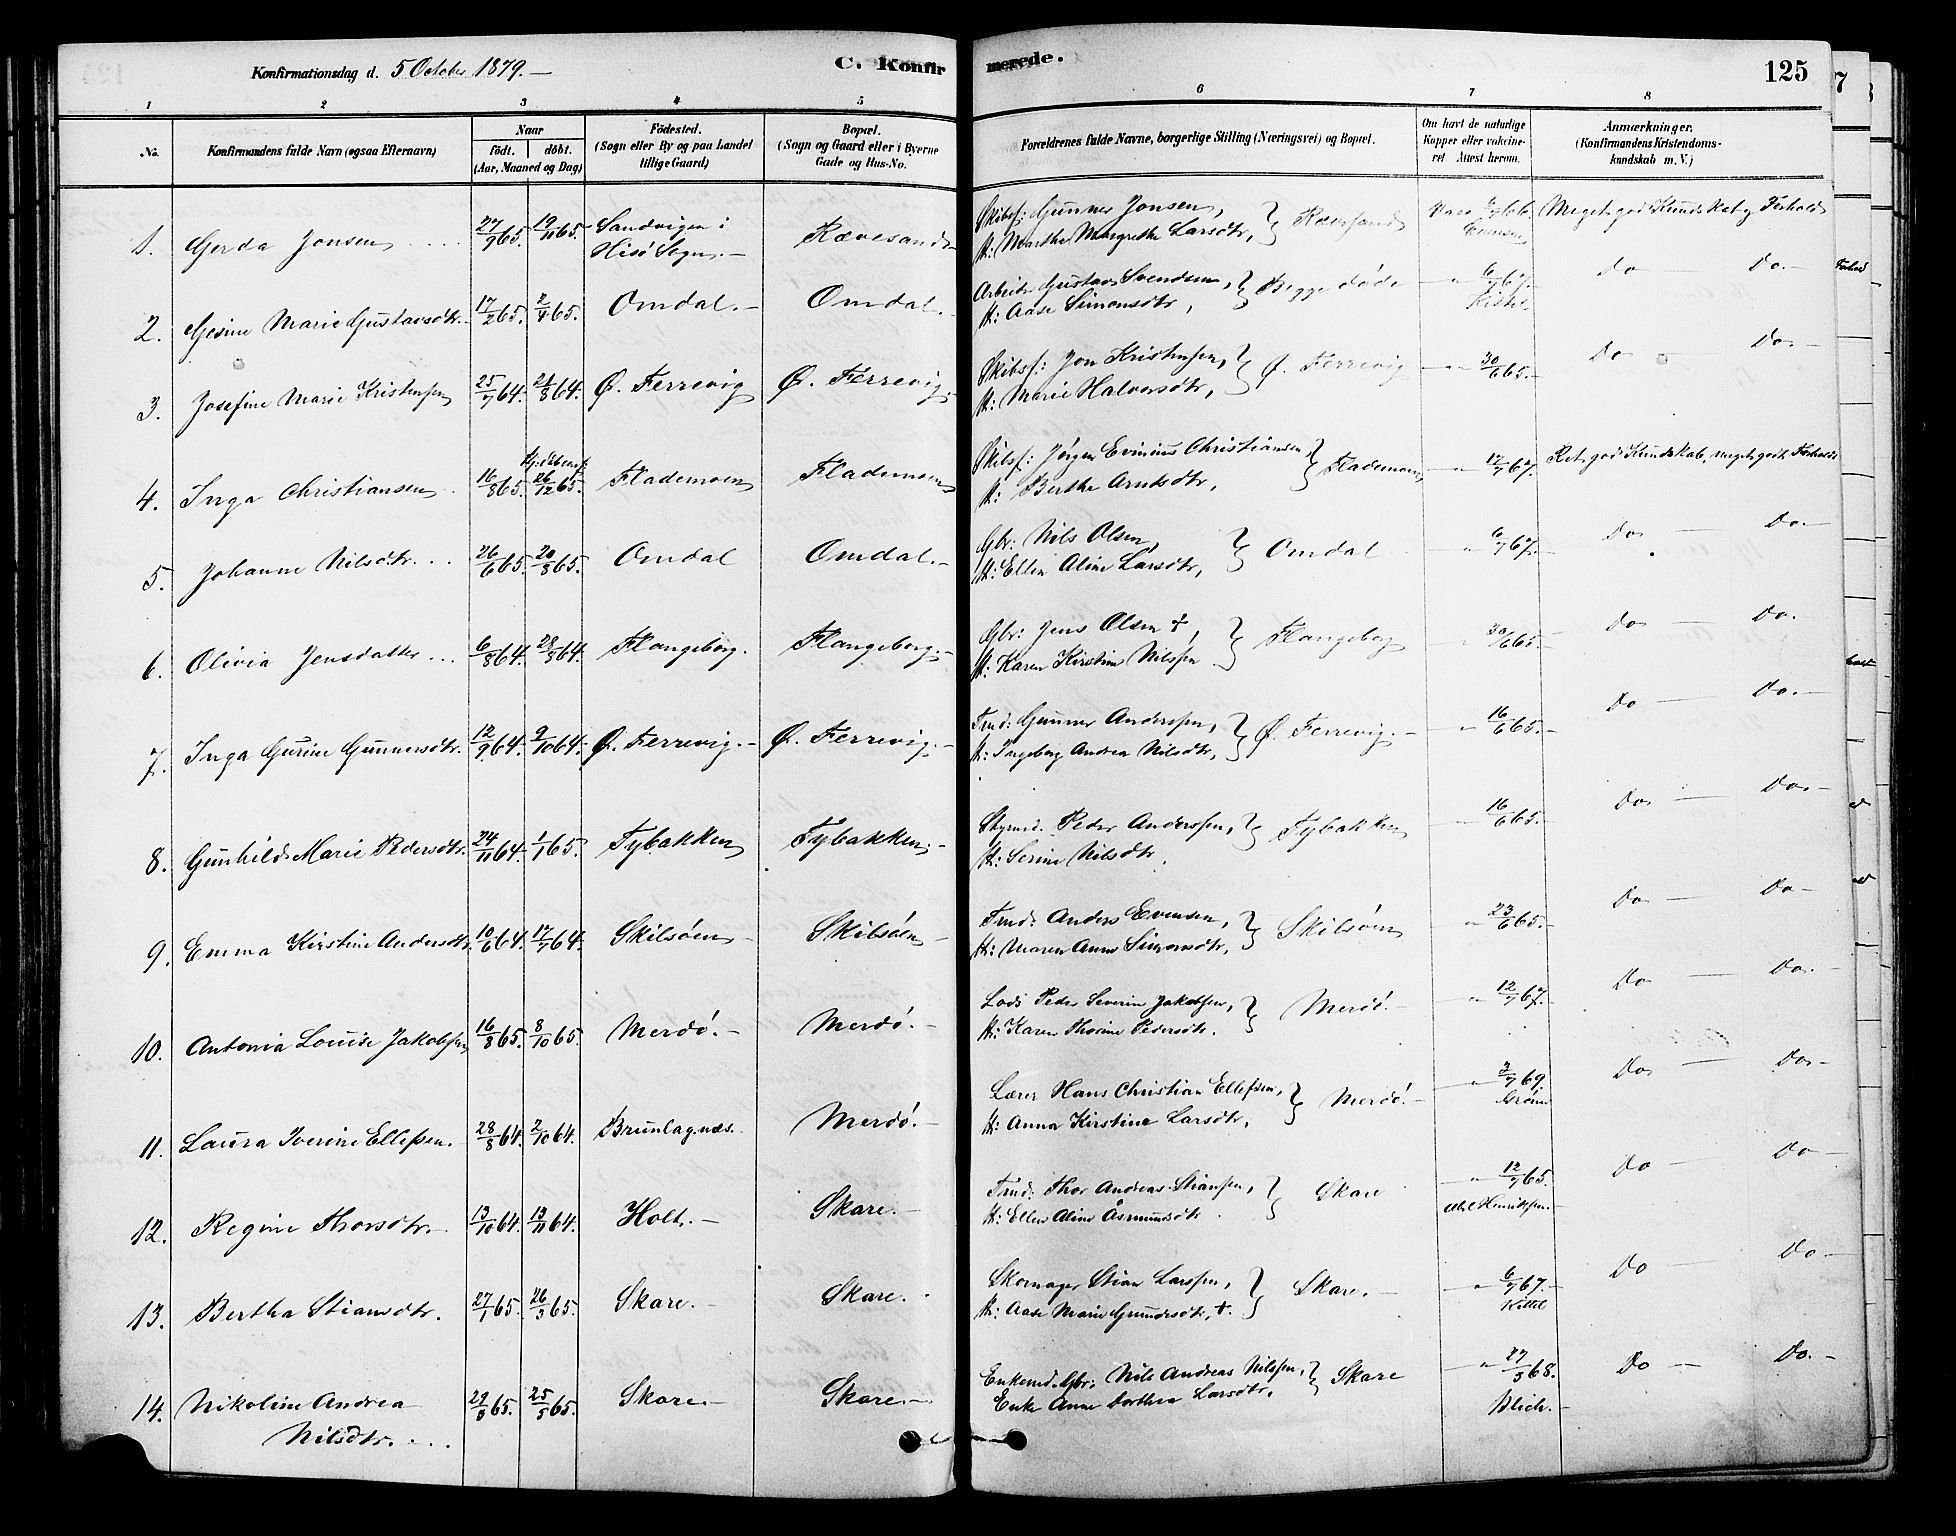 Konfirmationsdag d. 5 October 1879.—
C. Konfirmerede.
125
1 2 3 4 5 6 7 8
No.
Konfirmandens fulde Navn (ogsaa Efternavn)
Naar
födt. döbt.
(Aar, Maaned og Dag)
Födested.
(Sogn eller By og paa Landet
tillige Gaard)
Bopæl.
(Sogn og Gaard eller i Byerne
Gade og Hus-No.
Forældrenes fulde Navne, borgerlige Stilling (Næringsvei) og Bopæl.
Om havt de naturlige
Kopper eller vakcine-
ret Attest herom.
Anmærkninger.
(Konfirmandens Kristendoms-
kundskab m. V.)
1. Gerda Jonsen 27/9 65. 19/11 65. Sandvigen i Hisö Sogn.— Rævesand
Skibsf: Gunner Jonsen,
H: Marthe Margrethe Larsdtr, } Rævesand
Vacc 6/7 66. Evensen
Meget god Kundskab og Forhold
2. Gesine Marie Gustavsdtr. 17/2 65. 2/4 65. Omdal.— Omdal.—
Arbeid. Gustav Svendsen,
H: Aase Simonsdtr, } Begge døde
— " 6/7 67. Kittel.
Do — Do.—
3. Josefine Marie Kristensen 25/7 64. 21/8 64. Ø. Ferrevig Ø. Ferrevig.—
Skibsf: Jon Kristensen,
H: Marie Halvorsdtr, } Ø. Ferrevig
— " 30/6 65.—
Do Do.—
4. Inga Christiansen 16/8 65. 26/12 65. Flademoen Flademoen
Skibsf: Jørgen Evinius Christiansen
H: Berthe Arntsdtr, } Flademoen
— " 17/7 67.
Ret god Kundskab, meget godt Forhold
5. Johanne Nilsdtr. 26/6 65. 20/8 65. Omdal Omdal.—
Gbr: Nils Olsen,
H: Ellen Aline Larsdtr, } Omdal
— " 6/7 67.—
Do — Do.—
6. Olivia Jensdatter 6/8 64. 28/8 64. Flangeborg. Flangeborg.—
Gbr: Jens Olsen †,
H: Karen Kirstine Nilssen } Flangeborg
— " 30/6 65.—
Do — Do.
7. Inga Gurine Gunnersdtr. 12/9 64. 9/10 64. Ø. Ferrevig.— Ø. Ferrevig.—
Tmd: Gunner Anderssen,
H: Ingeborg Andrea Nilsdtr, } Ø. Ferrevig.—
— " 16/6 65.—
Do — Do.—
8. Gunhild Marie Pedersdtr. 24/11 64. 1/1 65. Tybakken Tybakken.—
Styrmd. Peder Anderssen,
H: Serine Nilsdtr. } Tybakken
— " 16/6 65.
Do — Do.—
9. Emma Kirstine Andersdtr. 10/6 64. 17/7 64. Skilsöen Skilsöen—
Tmd: Anders Evensen,
H: Maren Anne Simonsdtr, } Skilsöen
" 23/6 65.—
Do — Do—
10. Antonia Louise Jakobsen 16/8 65. 8/10 65. Merdö.— Merdö.—
Lods Peder Severin Jakobsen,
H: Karen Thorine Pedersdtr. } Merdö.—
" 12/7 67.—
Do — Do.—
11. Laura Iverine Ellefsen. 28/8 64. 2/10 64. Brunlagnæs. Merdö.—
Lærer Hans Christian Ellefsen,
H: Anna Kirstine Larsdtr, } Merdö.—
— " 3/7 69.
Do — Do—
12. Regine Thorsdtr. 13/10 64. 13/11 64. Holt.— Skare.—
Tmd: Thor Andreas Stiansen,
H: Ellen Aline Åsmundsdtr } Skare
— " 12/7 65. Henriksen.—
Do — Do—
13. Bertha Stiansdtr. 27/1 65. 26/3 65. Skare.— Skare.
Skomager Stian Larssen,
H: Aase Marie Gundersdtr, †. } Skare.—
" 6/7 67.— Kittel
Do — Do—
14. Nikoline Andrea Nilsdtr. 65. 25/5 65. Skare.— Skare.—
Enkemd. Gbr: Nils Andreas Nilssen,
Enke Anne Dorthea Larsdtr. } Skare
— " 27/5 68. Blich.—
Do — Do.—